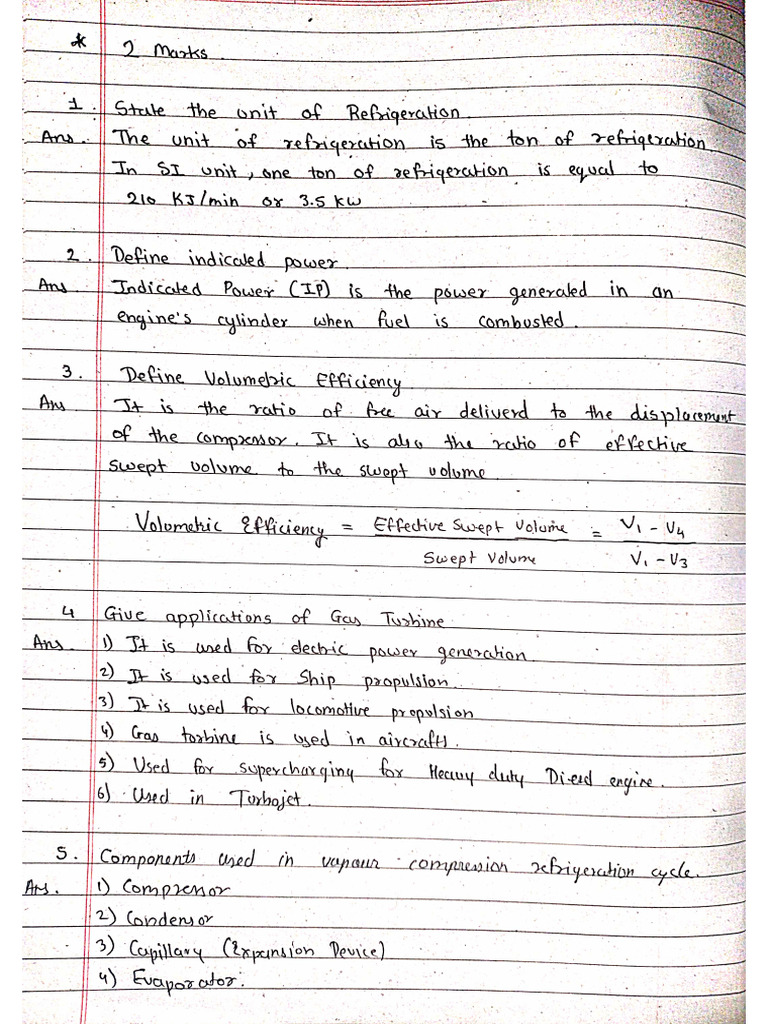 * 2 Marks.
1. State the unit of Refrigeration.
Ans. The unit of refrigeration is the ton of refrigeration.
In SI unit, one ton of refrigeration is equal to
210 KJ/min or 3.5 kW
2. Define indicated power.
Ans Indicated Power (IP) is the power generated in an
engine's cylinder when fuel is combusted.
3. Define Volumetric Efficiency
Ans It is the ratio of free air deliverd to the displacement
of the compressor. It is also the ratio of effective
swept volume to the swept volume.
Volumetric Efficiency = Effective Swept Volume = V1 - V4
Swept Volume V1 - V3
4 Give applications of Gas Turbine.
Ans. 1) It is used for electric power generation.
2) It is used for Ship propulsion.
3) It is used for locomotive propulsion
4) Gas turbine is used in aircrafts.
5) Used for supercharging for Heavy duty Diesel engine.
6) Used in Turbojet.
5. Components used in vapour compression refrigeration cycle.
Ans. 1) Compressor
2) Condensor
3) Capillary (Expansion Device)
4) Evaporator.